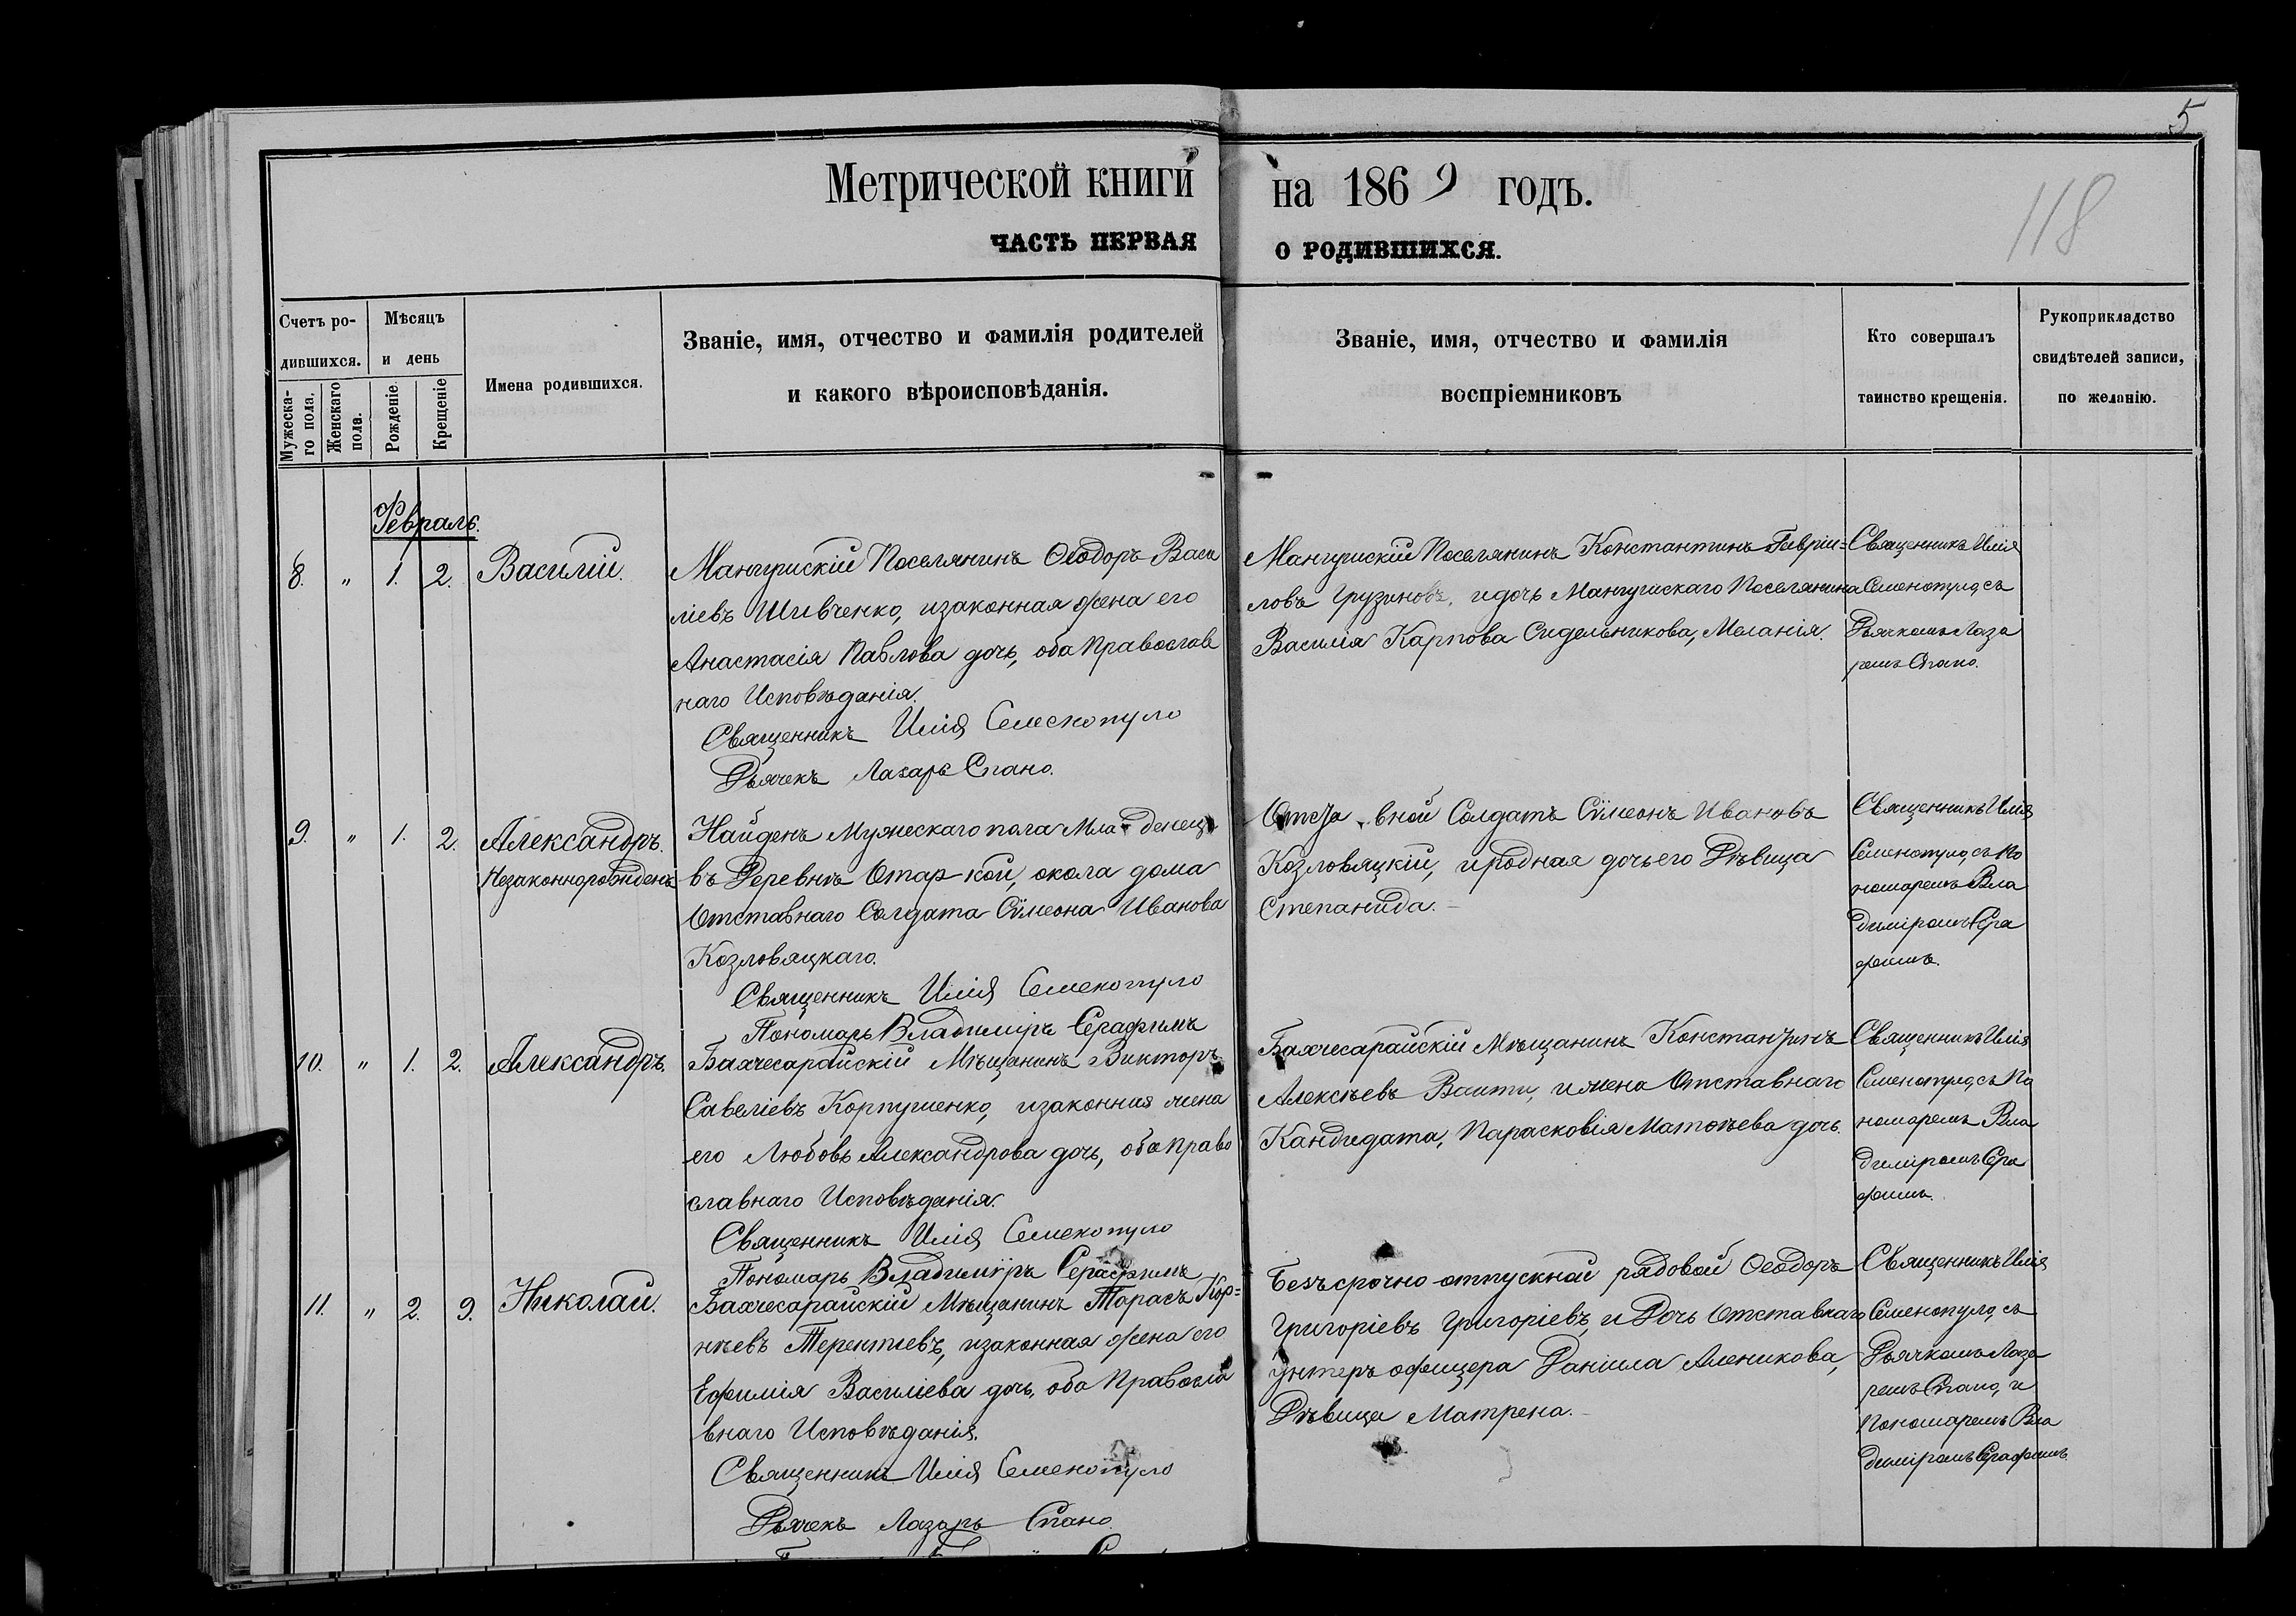 5
118
Метрической книги на 1869 годъ.
ЧАСТЬ ПЕРВАЯ О РОДИВШИХСЯ.
Счетъ ро-
дившихся.
Мужеска-
го пола.
Женскаго
пола.
Мѣсяцъ
и день
Рожденіе.
Крещеніе
Имена родившихся.
Званіе, имя, отчество и фамилія родителей
и какого вѣроисповѣданія.
Званіе, имя, отчество и фамилія
воспріемниковъ
Кто совершалъ
таинство крещенія.
Рукоприкладство
свидѣтелей записи,
по желанію.
Февраль.
8. " 1. 2. Василій.
Мангушскій Поселянинъ Ѳеодоръ Васи
ліевъ Шивченко, изаконная жена его
Анастасія Павлова дочь, оба Православ
наго Исповѣданія.
Священникъ Илія Семенопуло
Дьячекъ Лазарь Спано.
Мангушскій Поселянинъ Константинъ Гавріи=
ловъ Грузиновъ, идочь Мангушскаго Поселянина
Василія Карпова Сидельникова, Меланія.
Священникъ Илія
Семенопуло, съ
Дьячкомъ Лаза
ремъ Спано.
9. " 1. 2. Александръ.
Незаконнорожденъ
Найденъ Мужескаго пола Младенецъ
въ Деревнѣ Отар-кой, окола дома
Отставнаго Солдата Сѵмеона Иванова
Козловяцкаго.
Священникъ Илія Семенопуло
Пономарь Владиміръ Серафимъ
Отста вной Солдатъ Сѵмеонъ Ивановъ
Козловяцкій, иродная дочь его Дѣвица
Степанида.
Священникъ Илія
Семенопуло, съ По
номаремъ Вла
диміромъ Сера
фимъ.
10. " 1. 2. Александръ.
Бахчесарайскій Мѣщанинъ Викторъ
Савеліевъ Корпушенко, изаконная жена
его Любовь Александрова дочь, оба Право
славнаго Исповѣданія.
Священникъ Илія Семенопуло
Пономарь Владиміръ Серафимъ
Бахчесарайскій Мѣщанинъ Константинъ
Алексѣевъ Ваити, ижена Отставнаго
Кандидата, Парасковія Матѳѣева дочь.
Священникъ Илія
Семенопуло, съ По
номаремъ Вла
диміромъ Сера
фимъ.
11. " 2. 9. Николай.
Бахчесарайскій Мѣщанинъ Тарасъ Кор=
нѣевъ Терентіевъ, изаконная жена его
Ефимія Василіева дочь, оба Правосла
внаго Исповѣданія.
Священникъ Илія Семенопуло
Дьячекъ Лазарь Спано
Безъсрочно-отпускной рядовой Ѳеодоръ
Григоріевъ Григоріевъ, и Дочь Отставнаго
Унтеръ офицера Даніила Аленикова,
Дѣвица Матрена.
Священникъ Илія
Семенопуло, съ
Дьячкомъ Лаза
ремъ Спано, и
Пономаремъ Вла
диміромъ Серафимъ.